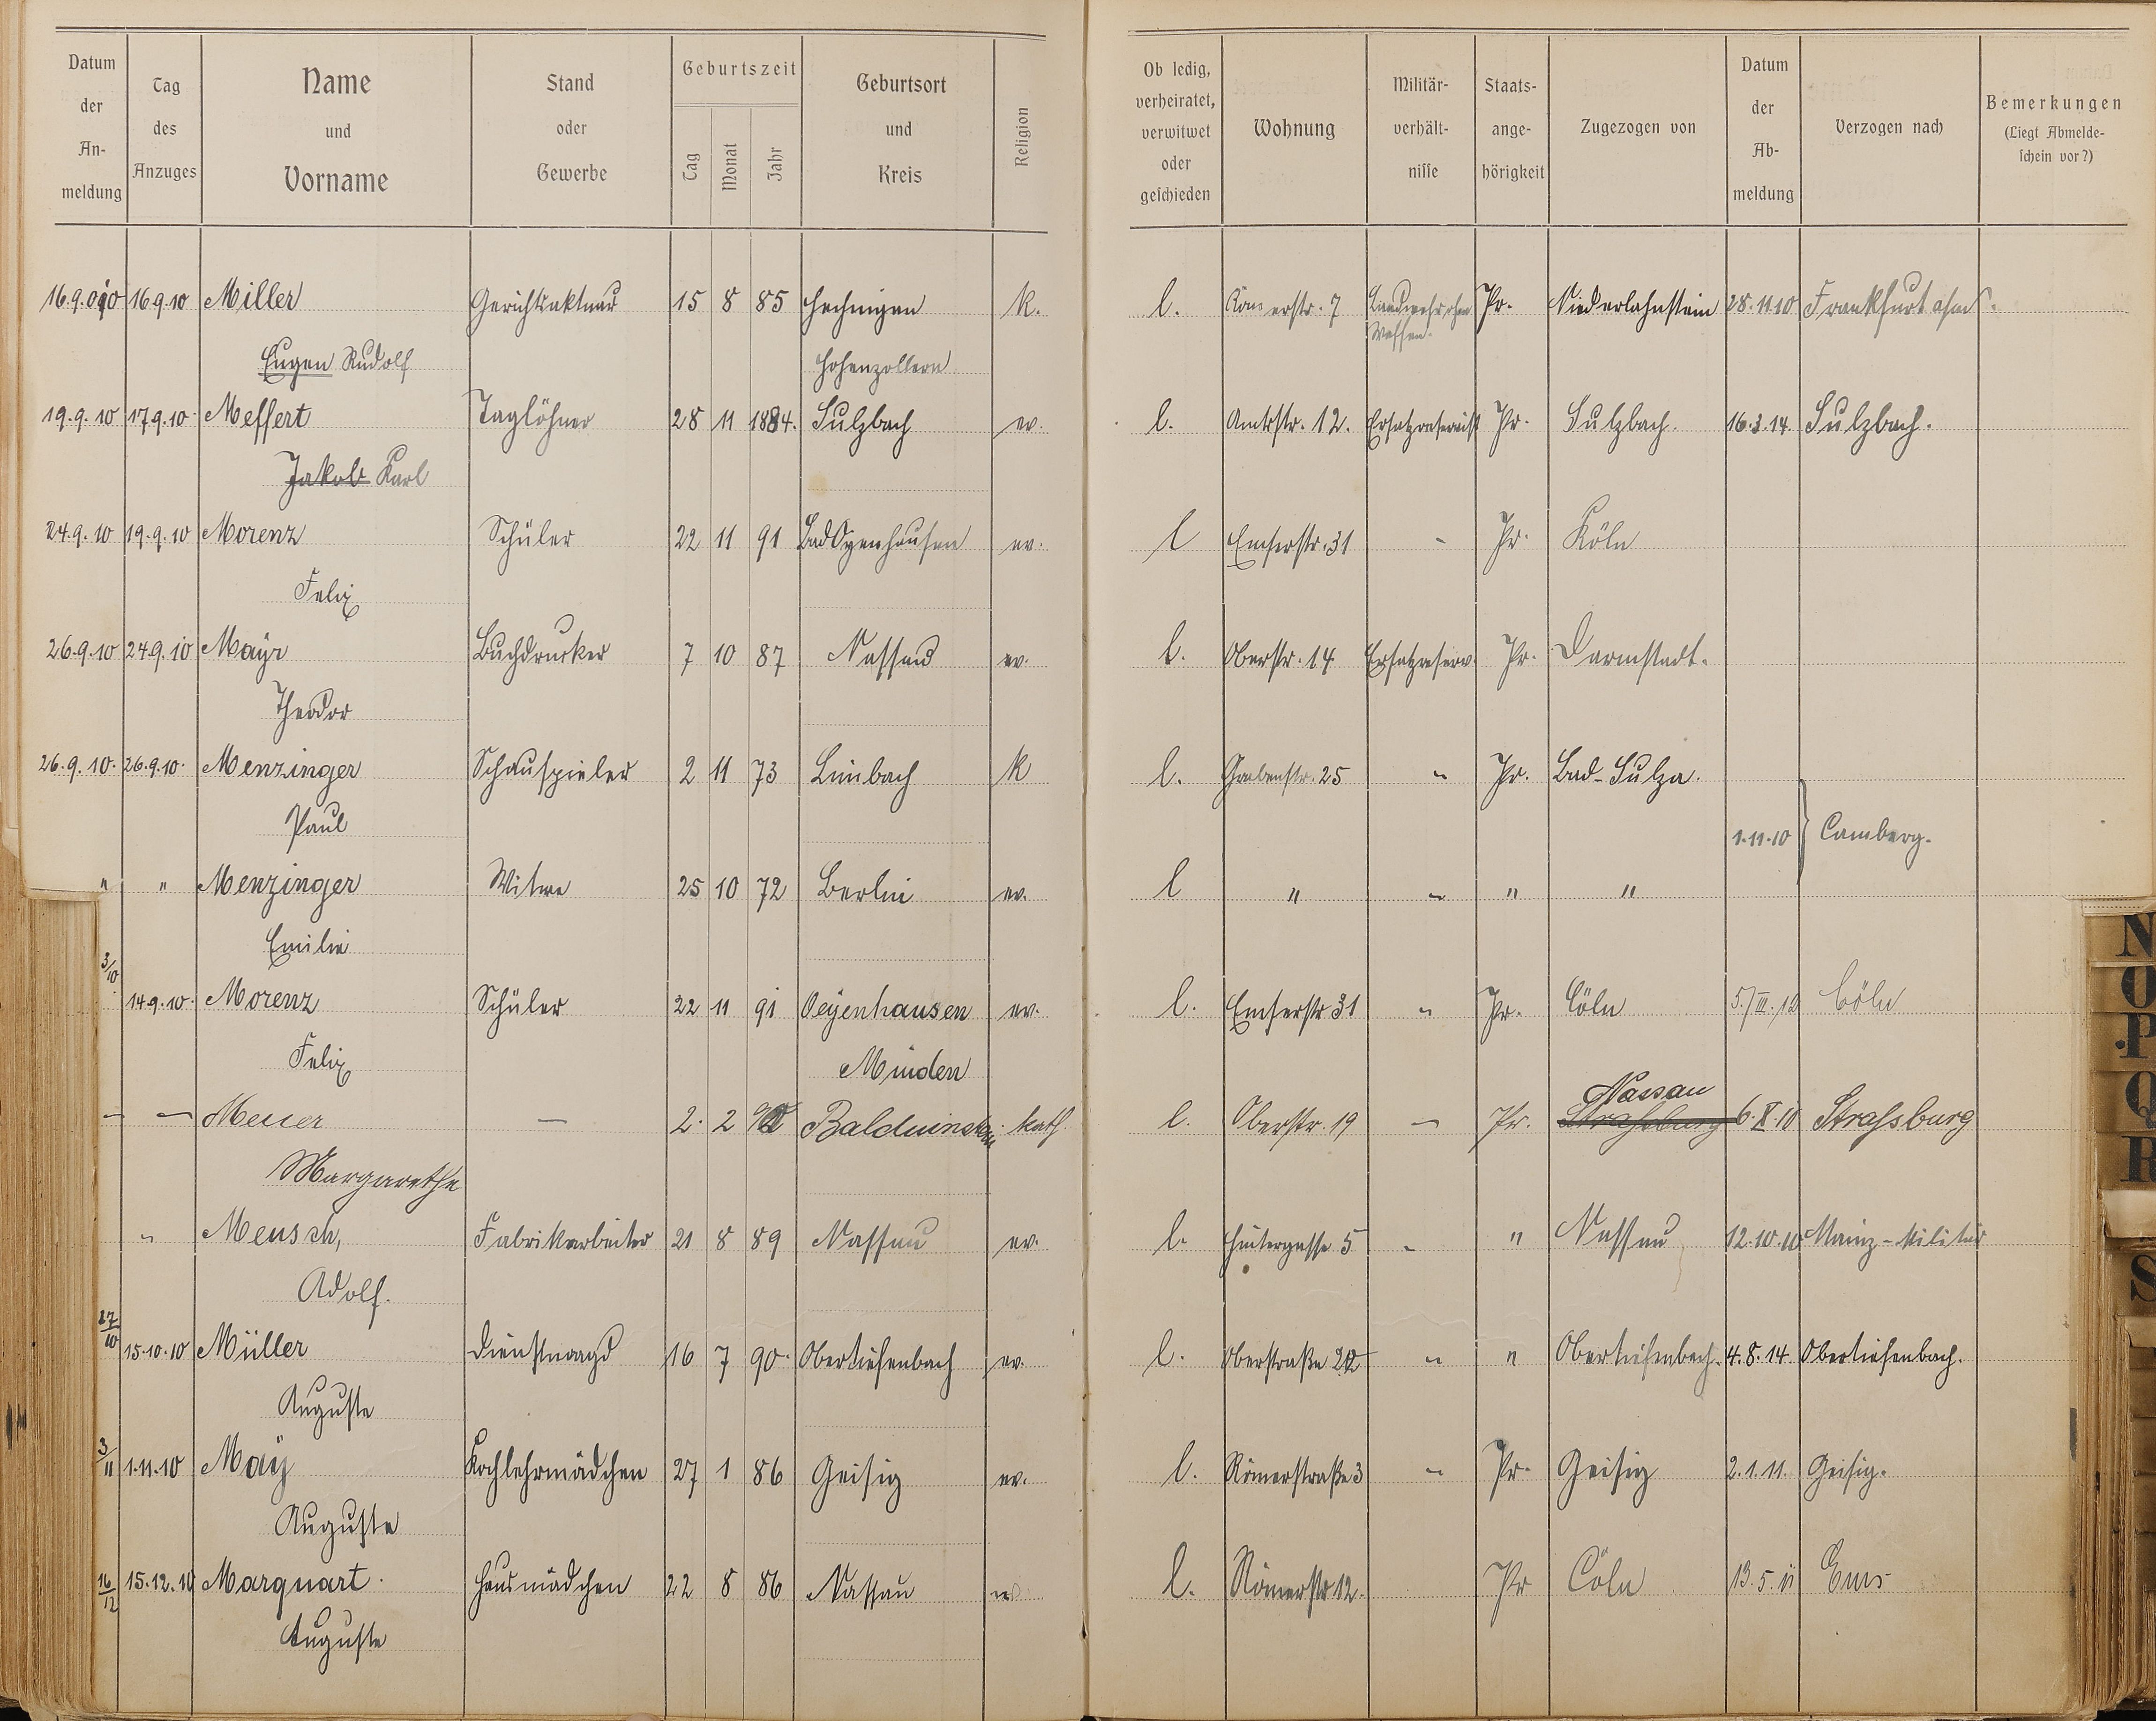 Datum der Anmeldung | Tag des Anzuges | Name und Vorname | Stand oder Gewerbe | Geburtszeit Tag Monat Jahr | Geburtsort und Kreis | Religion | Ob ledig, verheiratet, verwitwet oder geschieden | Wohnung | Militärverhältnisse | Staatsangehörigkeit | Zugezogen von | Datum der Abmeldung | Verzogen nach | Bemerkungen (Liegt Abmeldeschein vor?)
16.9.010 | 16.9.10 | Miller | Gerichtsaktuar | 15 | 8 | 85 | Hechingen | k. | l. | Römerstr. 7 | Landwehr ohne Waffen. | Pr. | Niederlahnstein | 28.11.10 | Frankfurt a/M
Eugen Rudolf | Hohenzollern
19.9.10 | 17.9.10 | Meffert | Taglöhner | 28 | 11 | 1884. | Sulzbach | ev. | l. | Amtsstr. 12. | Ersatzreservist | Pr. | Sulzbach. | 16.3.14. | Sulzbach.
Jakob Karl
24.9.10 | 19.9.10 | Morenz | Schüler | 22 | 11 | 91 | Bad Oyenhausen | ev. | l | Emserstr. 31 | - | Pr. | Köln
Felix
26.9.10 | 24.9.10 | Mayr | Buchdrucker | 7 | 10 | 87 | Nassau | ev. | l. | Oberstr. 14 | Ersatzreserv. | Pr. | Darmstadt.
Theodor
26.9.10. | 26.9.10. | Menzinger | Schauspieler | 2 | 11 | 73 | Limbach | k | l. | Grabenstr. 25 | " | Pr. | Bad-Sulza.
Paul | 1.11.10 | Camberg.
" | " | Menzinger | Witwe | 25 | 10 | 72 | Berlin | ev. | l | " | " | " | "
Emilie
3/10. | 14.9.10. | Morenz | Schüler | 22 | 11 | 91 | Oeyenhausen | ev. | l. | Emserstr 31 | " | Pr. | Cöln | 5./III./12 | Cöln
Felix | Minden
Nassau
— | — | Meuer | — | 2. | 2 | Balduinstein | kath | l. | Oberstr. 19 | — | Pr. | Straßburg | 6.X.10 | Straßburg
Margarethe
" | Mensch, | Fabrikarbeiter | 21 | 8 | 89 | Nassau | ev. | l. | Hintergasse 5 | " | " | Nassau | 12.10.10 | Mainz-Militär
Adolf.
17/10 | 15.10.10 | Müller | Dienstmagd | 16 | 7 | 90. | Obertiefenbach | ev. | l. | Oberstraße 22 | " | " | Obertiefenbach. | 4.8.14. | Obertiefenbach.
Auguste
3/11 | 1.11.10 | May | Kochlehrmädchen | 27 | 1 | 86 | Geisig | ev. | l. | Römerstraße 3 | " | Pr. | Geisig | 2.1.11. | Geisig.
Auguste
16/12 | 15.12.10 | Marquart. | Hausmädchen | 22 | 8 | 86 | Nassau | ev | l. | Römerstr 12. | Pr | Cöln | 13.5.11 | Ems
Auguste
N
O
P
Q
R
S